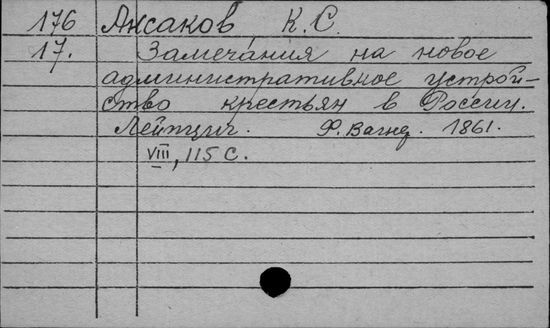 176 Аксаков К. С.
17. Замечания на новое
административное устрой-
ство крестьян в России.
Лейпциг. Ф. Вагнер. 1861.
VIII, 115 с.